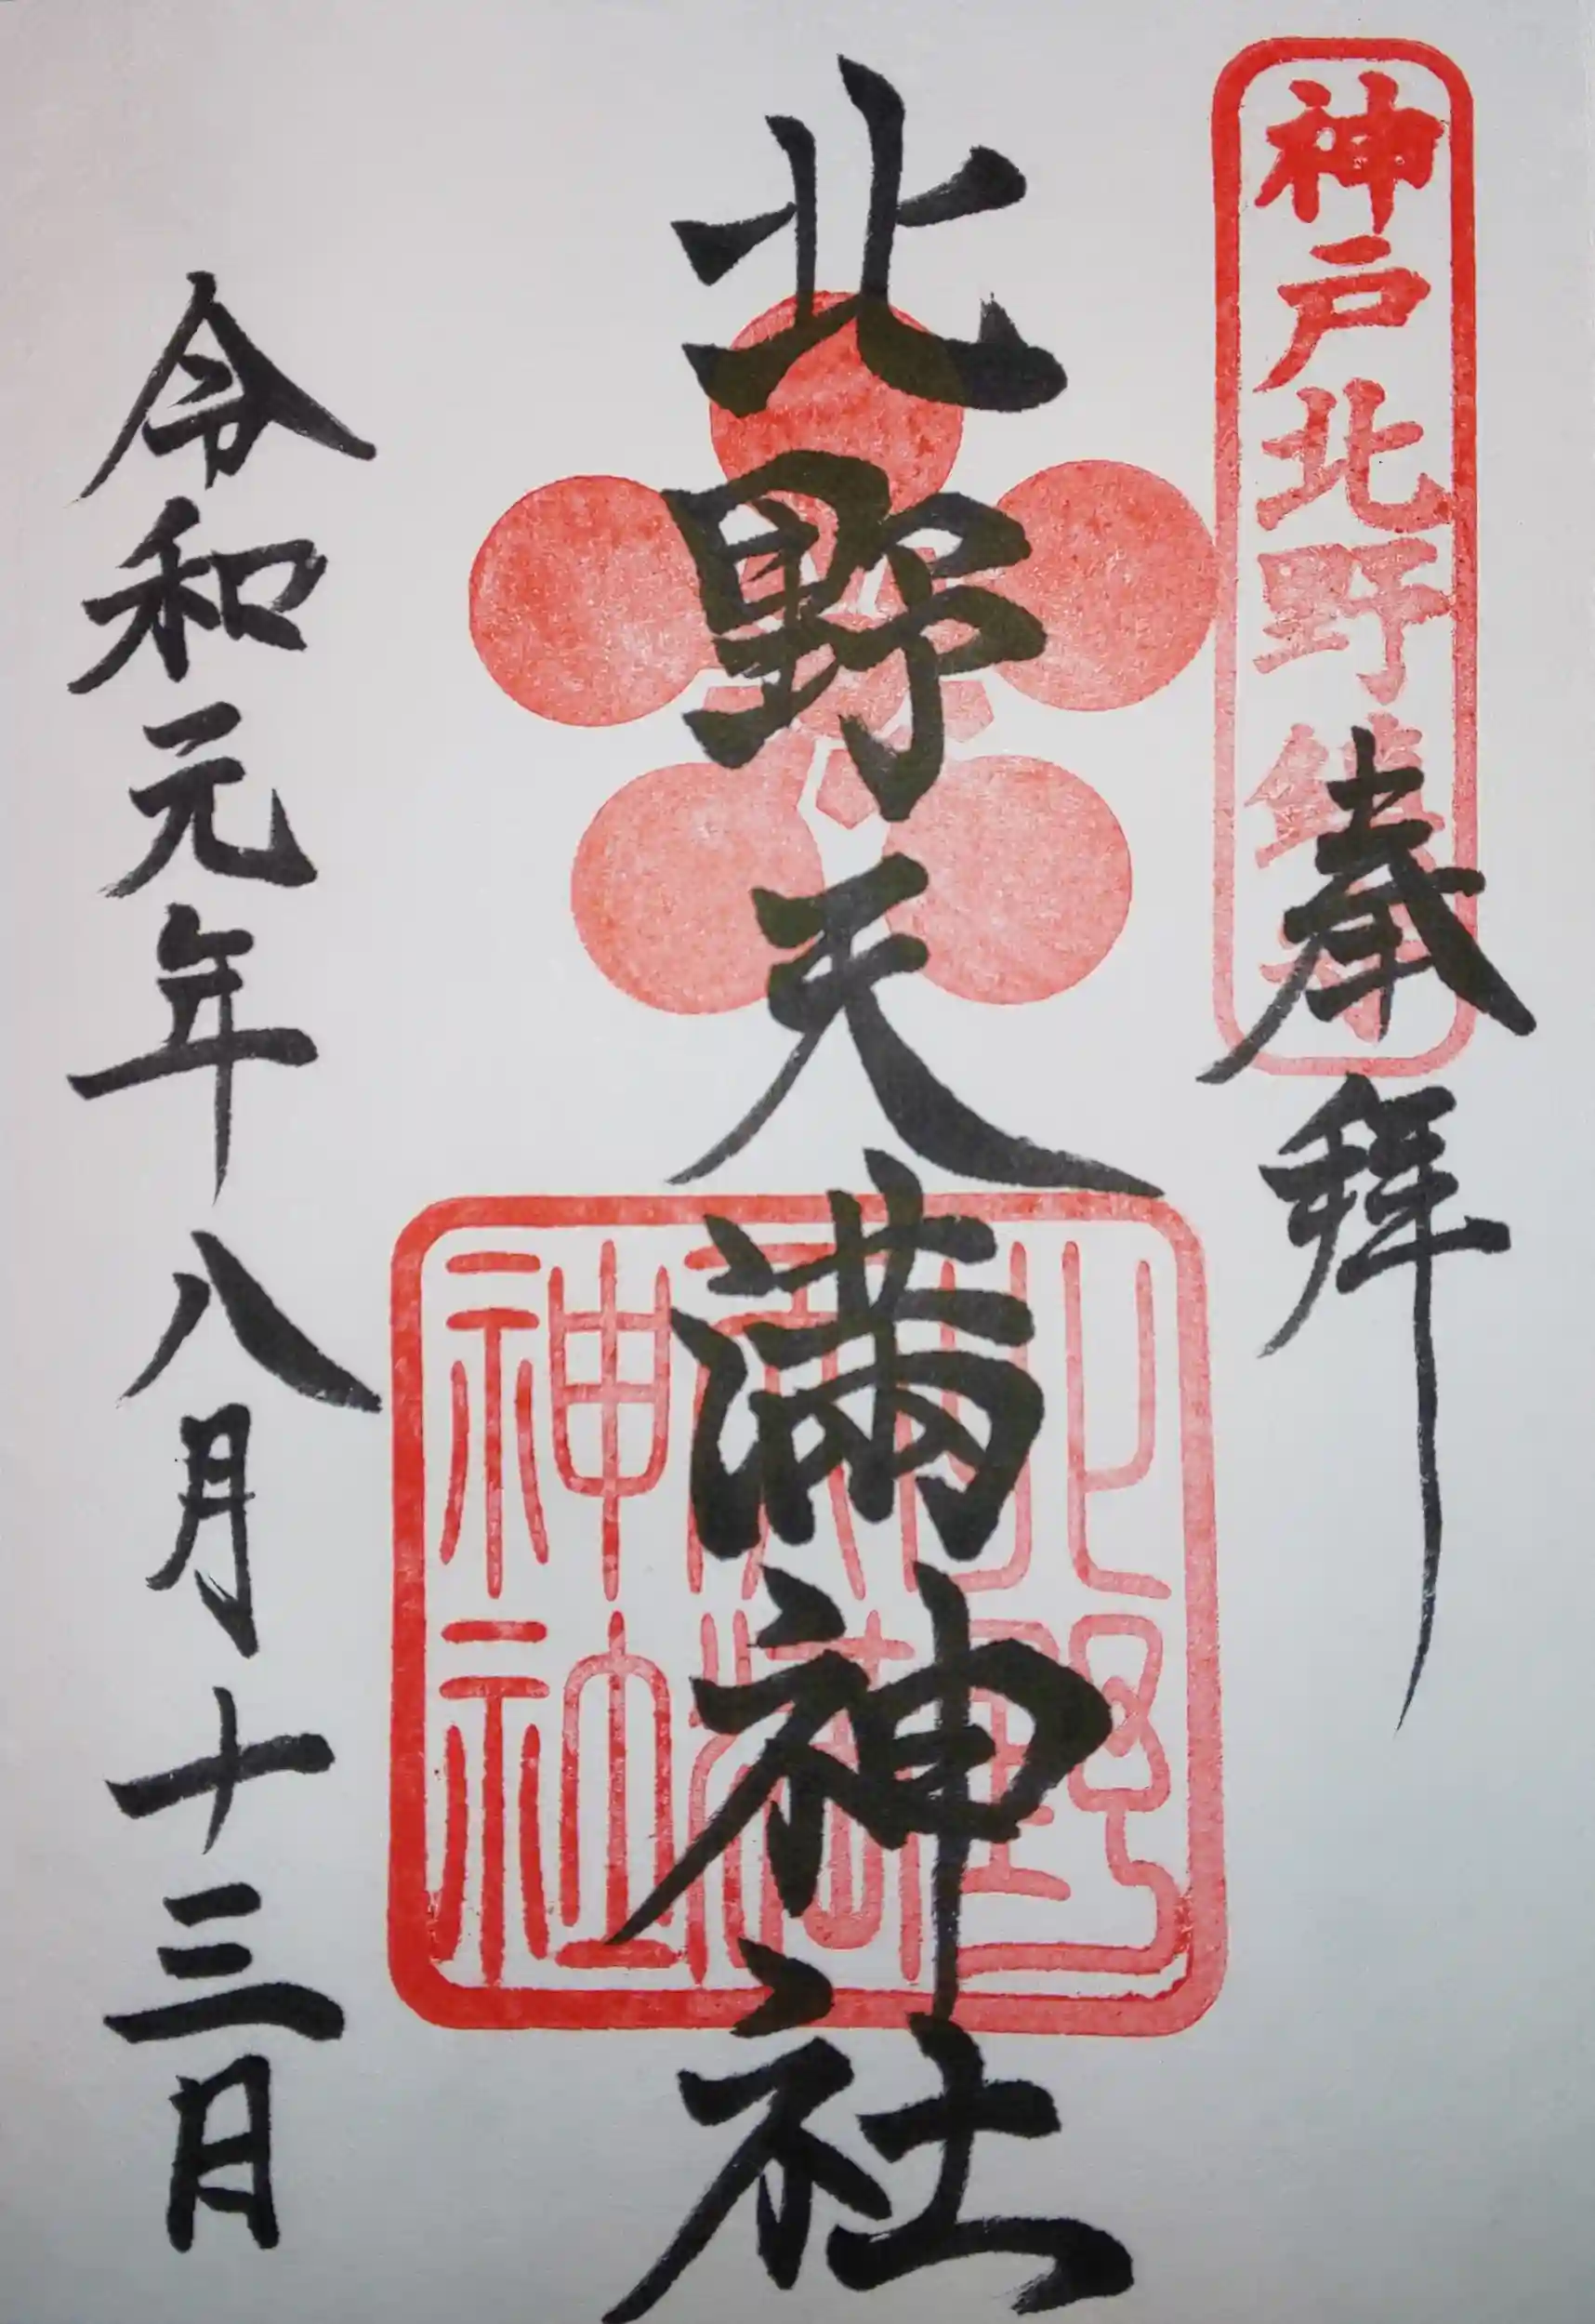 神戸北野鎮座
奉拝
北野天満神社
北野
天満
神社
令和元年八月十三日